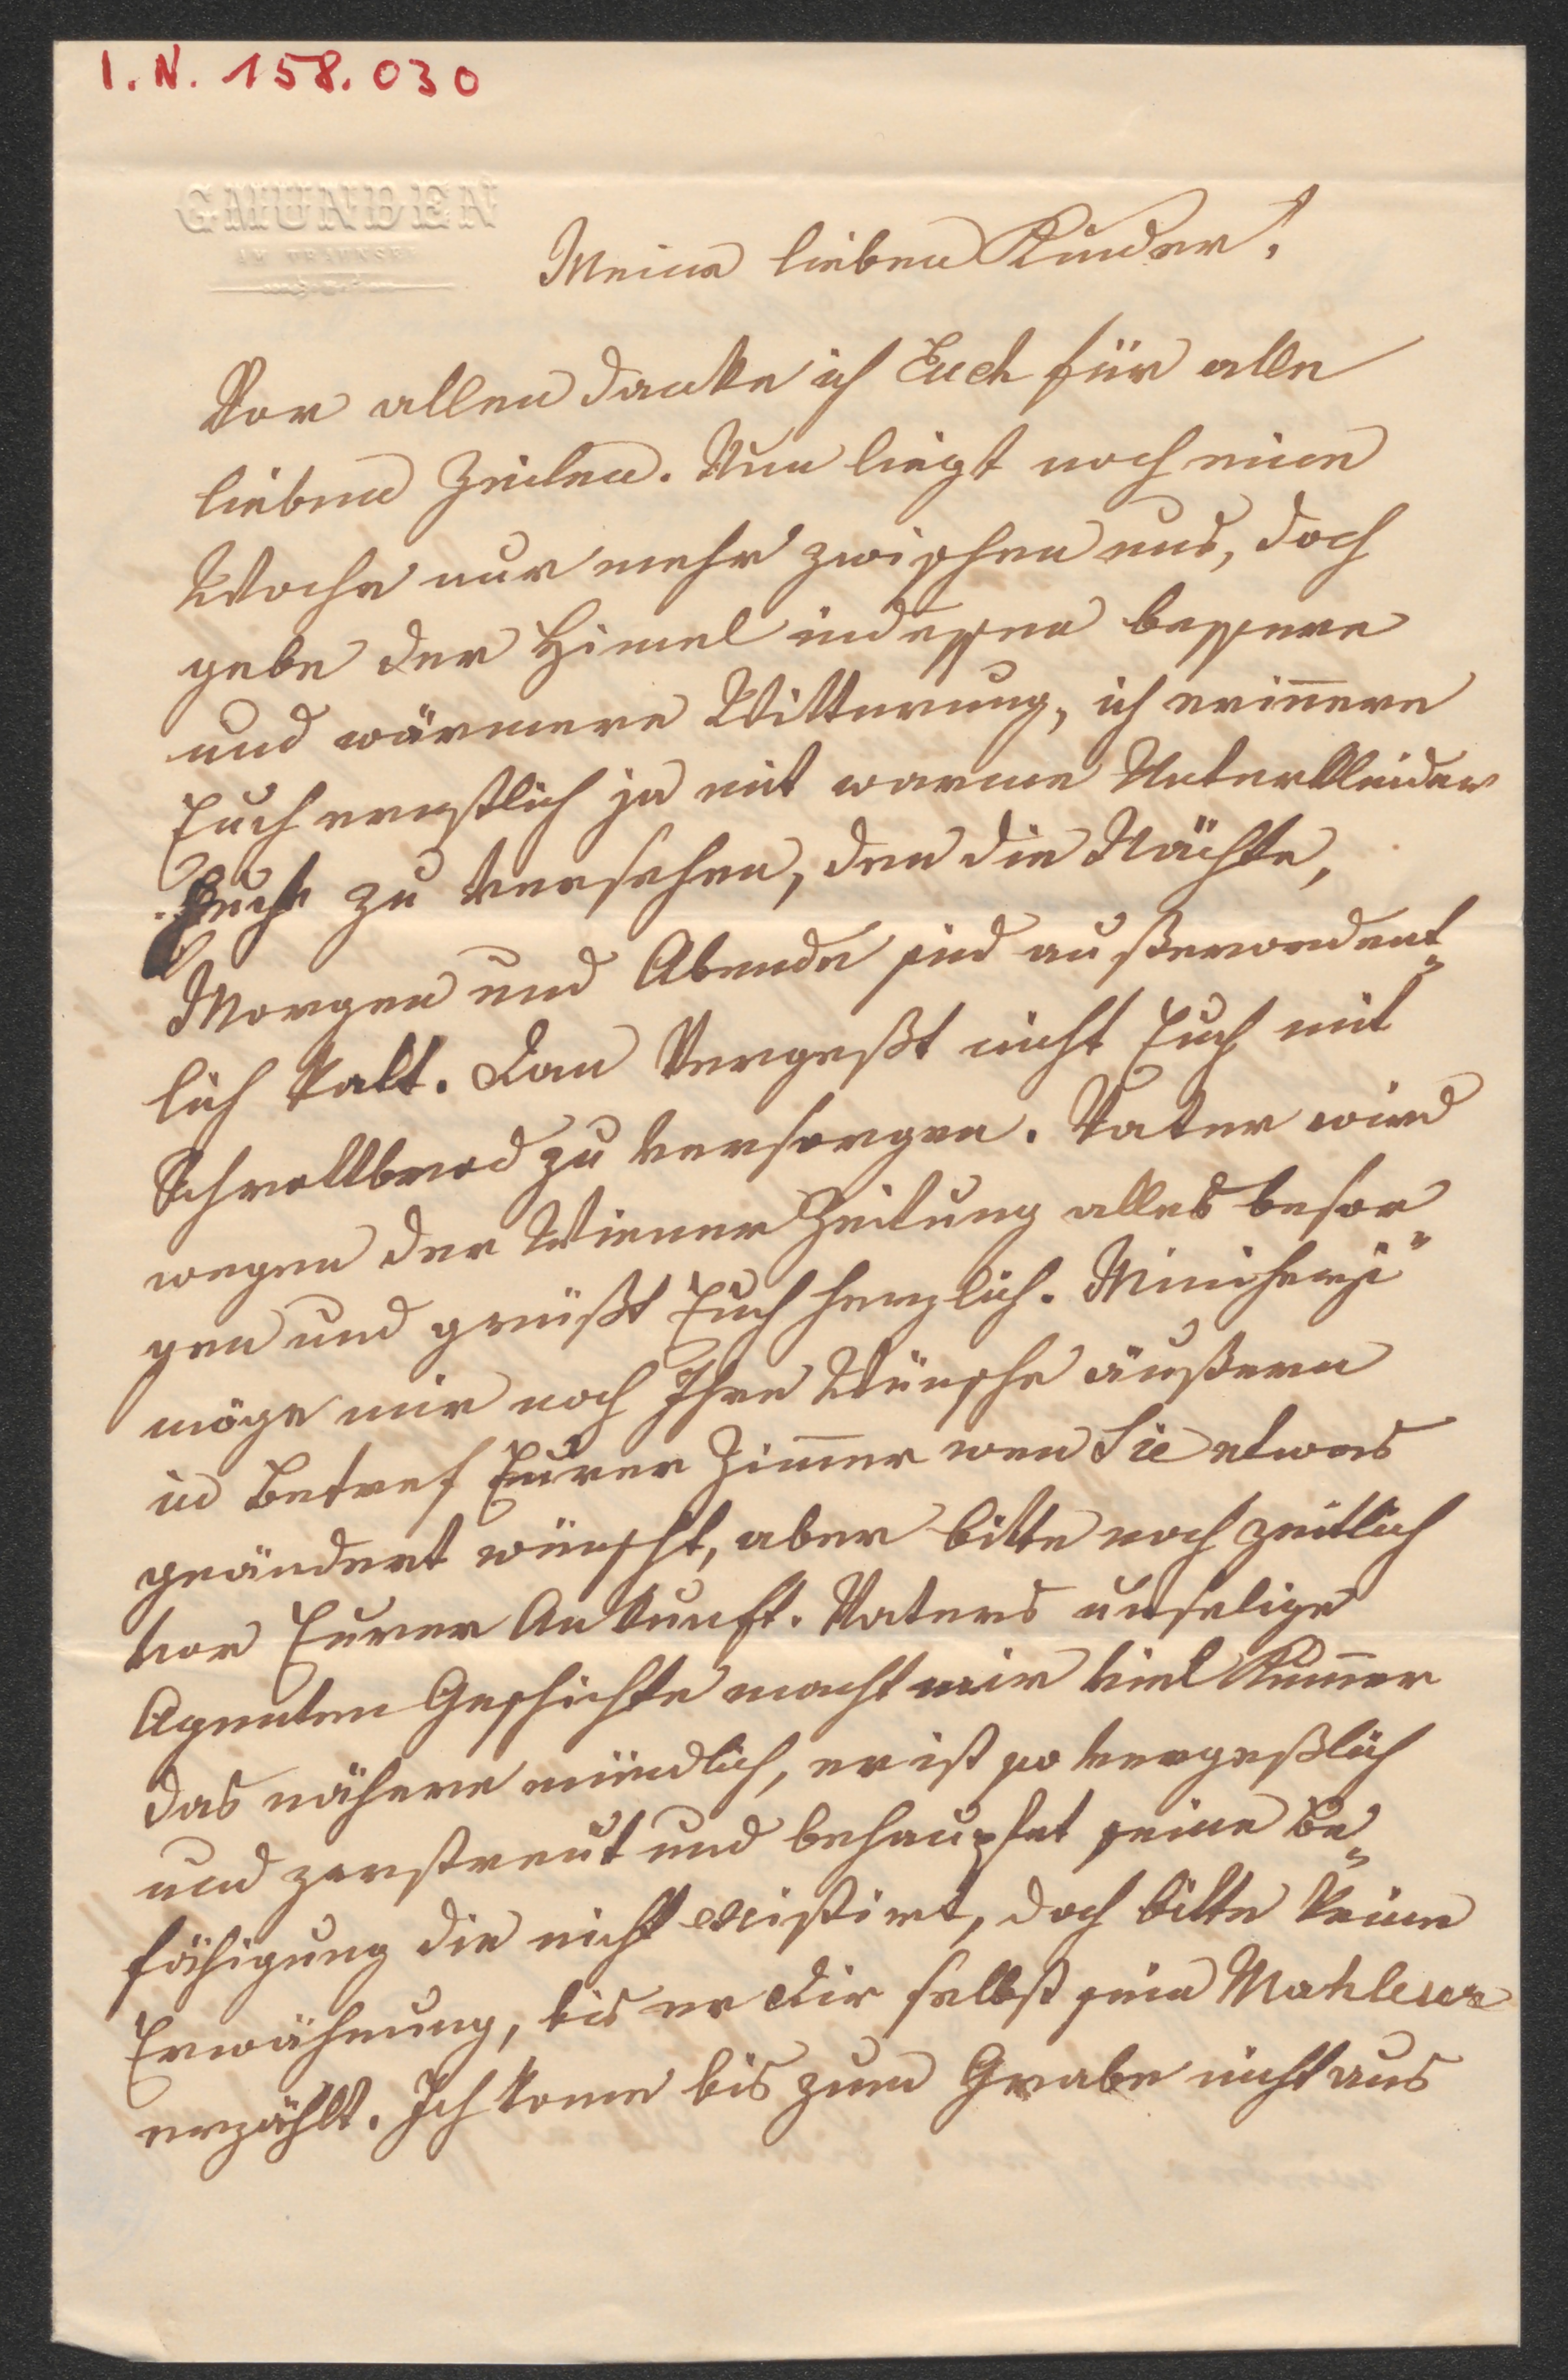 I. N. 158.030
GMUNDEN
AM TRAUNSEE
Meine lieben Kinder!
Vor allen danke ich Euch für alle
lieben Zeilen. Nun liegt noch eine
Woche nur mehr zwischen uns, doch
gebe der Himel indessen bessere
und wärmere Witterung, ich erin̅ere
Euch ernstlich ja mit warme Unterkleider
Euch zu versehen, den die Nächte,
Morgen und Abende sind außerordent¬
lich kalt. Dan Vergeßt nicht Euch mit
Schrottbrod zu versorgen. Vater wird
wegen der Wiener Zeitung alles besor¬
gen und grüßt Euch herzlich.
möge mir noch Ihre Wünsche äußern
in Betref Eurer Zim̅er wen Sie etwas
geändert wünscht, aber bitte noch zeitlich
vor Eurer Ankunft. Vaters unselige
Agenten Geschichte macht mir viel Kum̅er
das nähere mündlich, er ist so vergeßlich
und zerstreut und behauptet seine Be¬
fähigung die nicht existirt, doch bitte keine
Erwähnung, bis er Dir selbst sein Mahleur
erzählt. Ich kome bis zum Grabe nicht aus